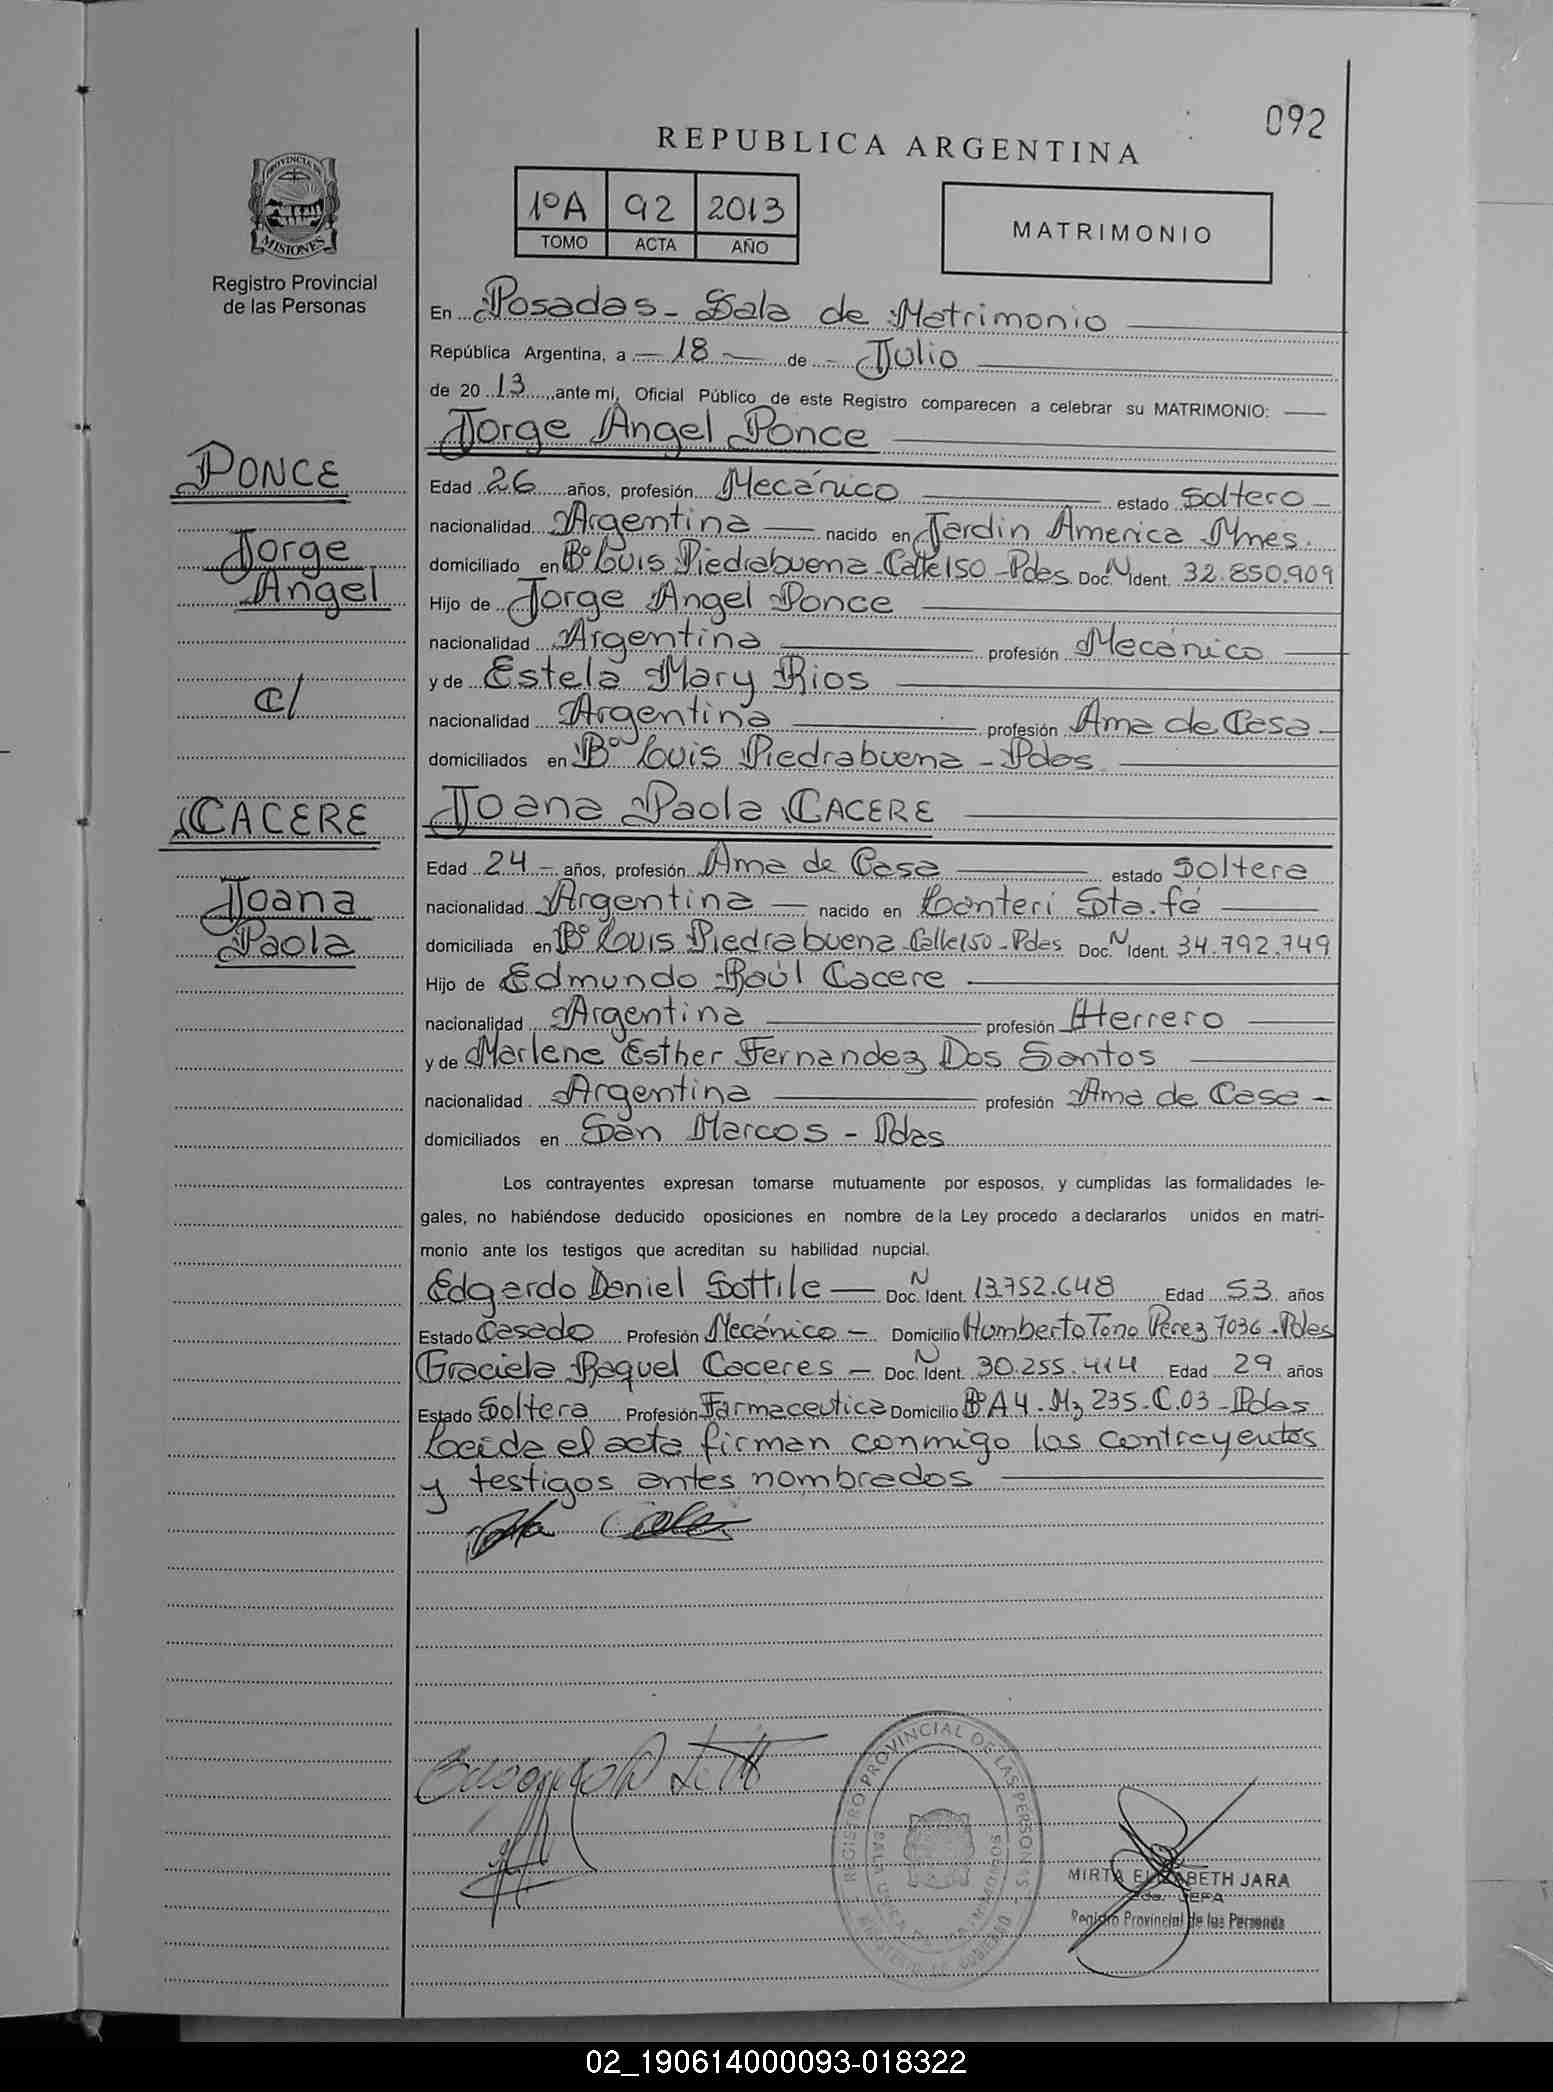 092
REPUBLICA ARGENTINA
1ºA 92 2013
TOMO ACTA AÑO
MATRIMONIO
PROVINCIA DE
MISIONES
Registro Provincial
de las Personas
En Posadas - Sala de Matrimonio
República Argentina, a 18 de Julio
de 20 13 ante mí, Oficial Público de este Registro comparecen a celebrar su MATRIMONIO:
Jorge Angel Ponce
PONCE
Jorge
Angel
c/
CACERE
Joana
Paola
Edad 26 años, profesión Mecánico estado Soltero
nacionalidad Argentina nacido en Jardin America Mnes.
domiciliado en Bº Luis Piedrabuena - Calle 150 - Pdas Doc. N Ident. 32.850.909
Hijo de Jorge Angel Ponce
nacionalidad Argentina profesión Mecánico
y de Estela Mary Rios
nacionalidad Argentina profesión Ama de Casa
domiciliados en Bº Luis Piedrabuena - Pdas
Joana Paola CACERE
Edad 24 años, profesión Ama de Casa estado Soltera
nacionalidad Argentina nacido en Lanteri Sta. fé
domiciliada en Bº Luis Piedrabuena - Calle 150 - Pdas Doc. N Ident. 34.792.749
Hijo de Edmundo Raúl Cacere
nacionalidad Argentina profesión Herrero
y de Marlene Esther Fernandez Dos Santos
nacionalidad Argentina profesión Ama de Casa -
domiciliados en San Marcos - Pdas
Los contrayentes expresan tomarse mutuamente por esposos, y cumplidas las formalidades le-
gales, no habiéndose deducido oposiciones en nombre de la Ley procedo a declararlos unidos en matri-
monio ante los testigos que acreditan su habilidad nupcial.
Edgardo Daniel Sottile - Doc. N Ident. 13.752.648 Edad 53 años
Estado Casado Profesión Mecánico - Domicilio Humberto Tono Perez 7036 - Pdas
Graciela Raquel Caceres - Doc. N Ident. 30.255.414 Edad 29 años
Estado Soltera Profesión Farmaceutica Domicilio Bº A 4 - Mz 235 - C. 03 - Pdas
Leida el acta firman conmigo los contrayentes
y testigos antes nombrados
REGISTRO PROVINCIAL DE LAS PERSONAS
MINISTERIO DE GOBIERNO
MIRTA ELIZABETH JARA
2da. JEFA
Registro Provincial de las Personas
02_190614000093-018322